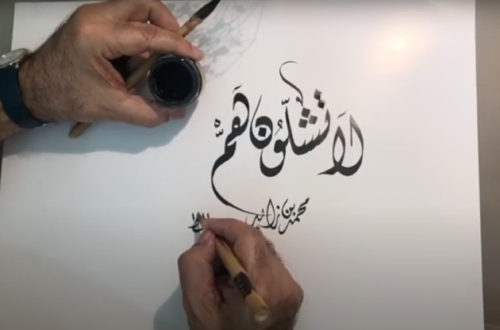 لَا تشلّون هَمّ
محمد بن زايد